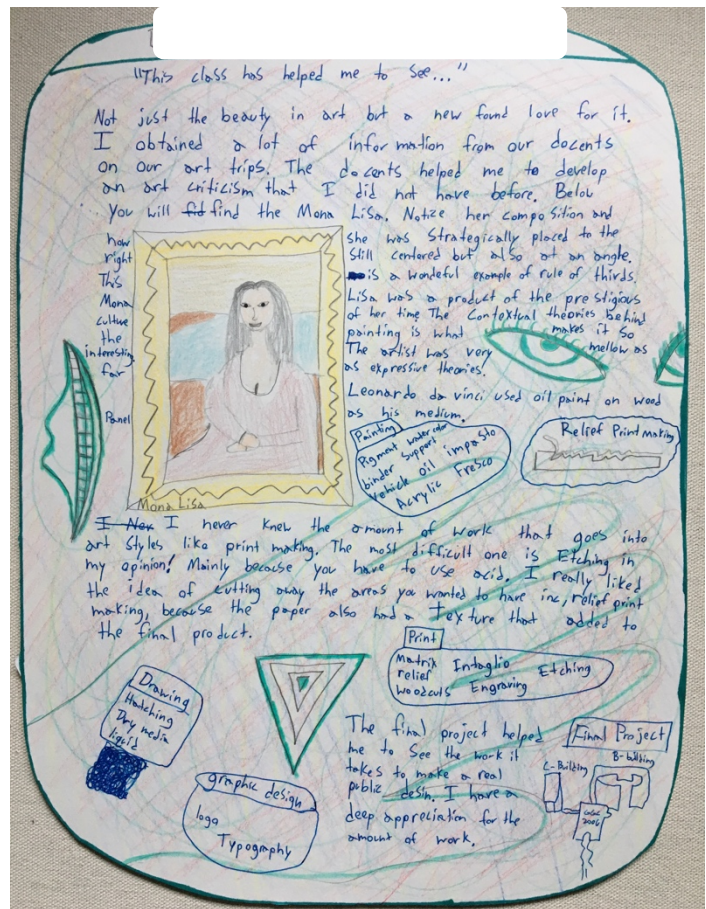 "This class has helped me to see..."
Not just the beauty in art but a new found love for it.
I obtained a lot of infor mation from our docents
on our art trips. The docents helped me to develop
an art criticism that I did not have before. Below
You will fid find the Mona Lisa. Notize her composition and
how she was Strategically placed to the
right Still centered but also at an angle.
This is a wondeful example of rule of thirds.
Mona Lisa was a product of the prestigious
culture of her time The Contextual theories behind
the painting is what makes it so
interesting The artist was very mellow as
far as expressive theories.
Leonardo da vinci used oil paint on wood
Panel as his medium.
Mona Lisa
Painting
Pigment water color
binder support
vehicle oil impasto
Acrylic Fresco
Relief Print Making
I Nev I never knew the amount of work that goes into
art styles like print making. The most difficult one is Etching in
my opinion! Mainly because you have to use acid. I really liked
the idea of cutting away the areas you wanted to have inc, relief print
making, because the paper also had a texture that added to
the final product.
Print
Matrix Intaglio Etching
relief
woodcuts Engraving
Drawing
Hatching
Dry media
liquid
graphic design
loga
Typography
The final project helped
me to See the work it
takes to make a real
public desin. I have a
deep appreciation for the
amount of work.
Final Project
C-Building
B-building
2006